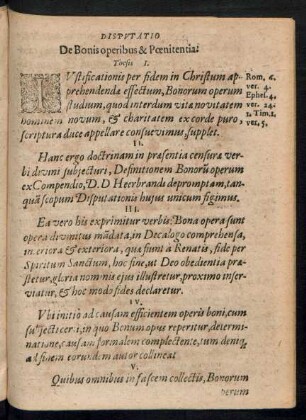 DISPUTATIO
De Bonis operibus & Pœnitentia:
Thesis I.
IUstificationis per fidem in Christum ap-
prehendenda effectum, Bonorum operum
studium, quod interdum vita novitatem
hominem novum, & charitatem ex corde puro,
scriptura duce appellare consuevimus, supplet.
Rom. 6.
ver. 4.
Ephes. 4.
ver. 24.
1. Tim. 1.
ver. 5.
II.
Hanc ergo doctrinam in præsentia censura ver-
bi divini subjecturi, Definitionem Bonorũ operum
ex Compendio, D. D Heerbrandi depromptam, tan-
quã scopum Disputationis hujus unicum figimus.
III.
Ea vero his exprimitur verbis: Bona opera sunt
opera divinitus mãdata, in Decalogo comprehensa,
interiora & exteriora, quæ fiunt à Renatis, fide per
Spiritum Sanctum, hoc fine, ut Deo obedientia præ-
stetur, gloria nominis ejus illustretur, proximo inser-
viatur, & hoc modo fides declaretur.
IV.
Ubi initio ad causam efficientem operis boni, cum
subjecti certi, in quo Bonum opus reperitur, determi-
natione, causam formalem complectente, tum denique
ad finem eorundem autor collineat
V.
Quibus omnibus in fascem collectis, Bonorum
operum